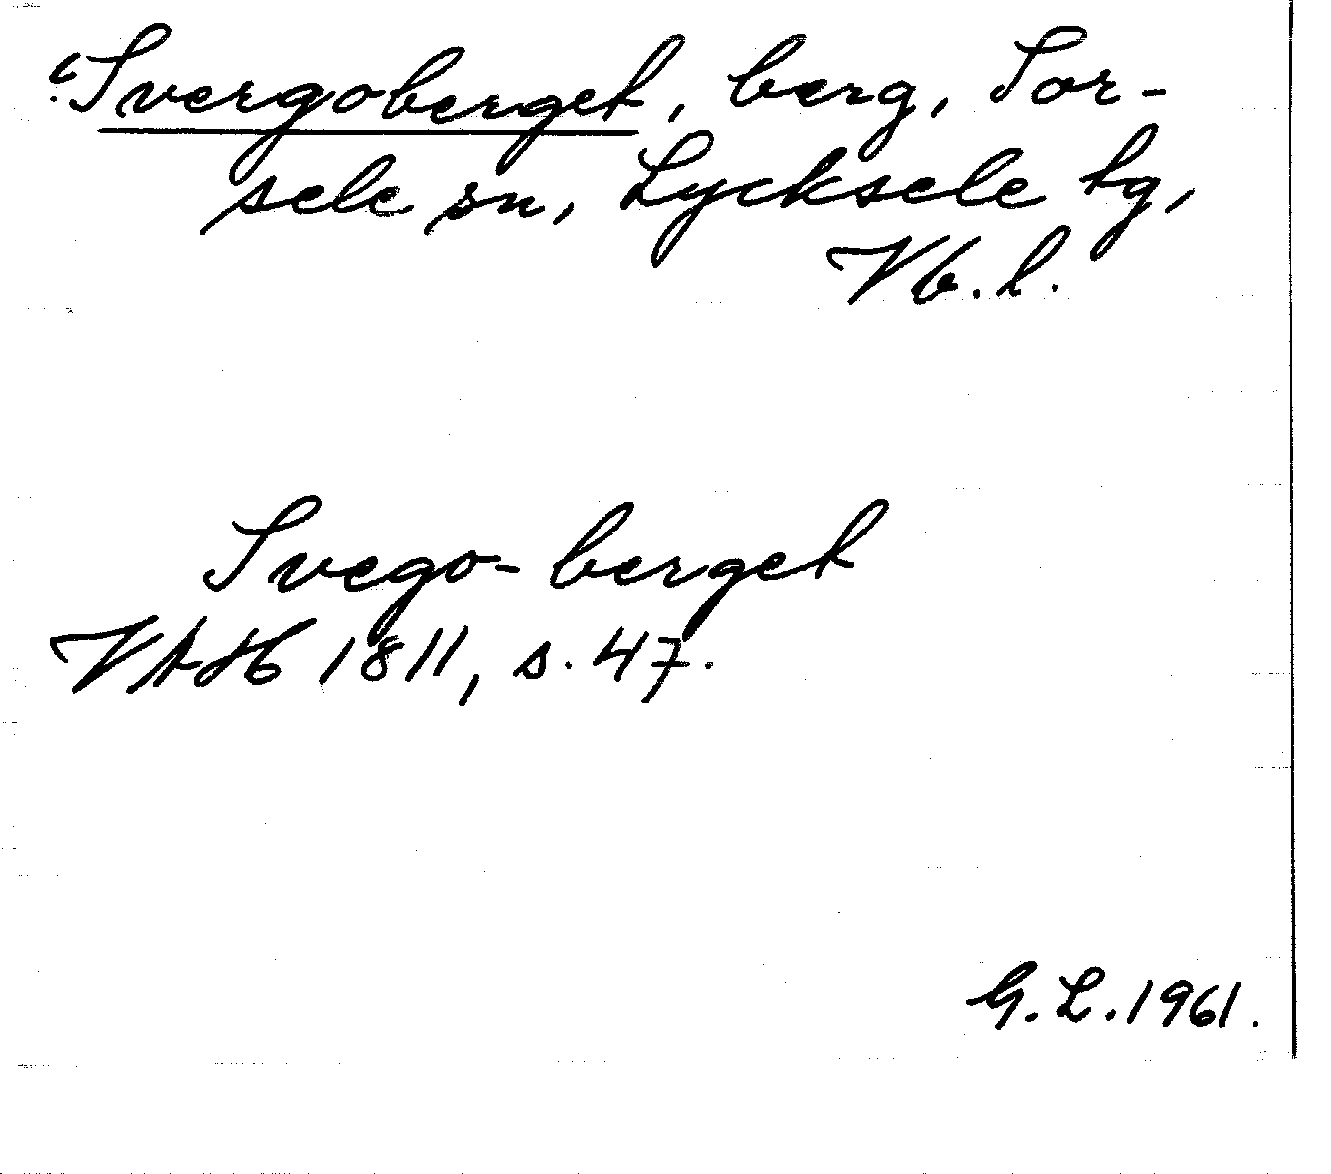 ?Svergoberget, berg, Sor-
sele sn, Lycksele tg,
Vb. l.
Svego-berget
VAH 1811, s. 47.
G. L. 1961.